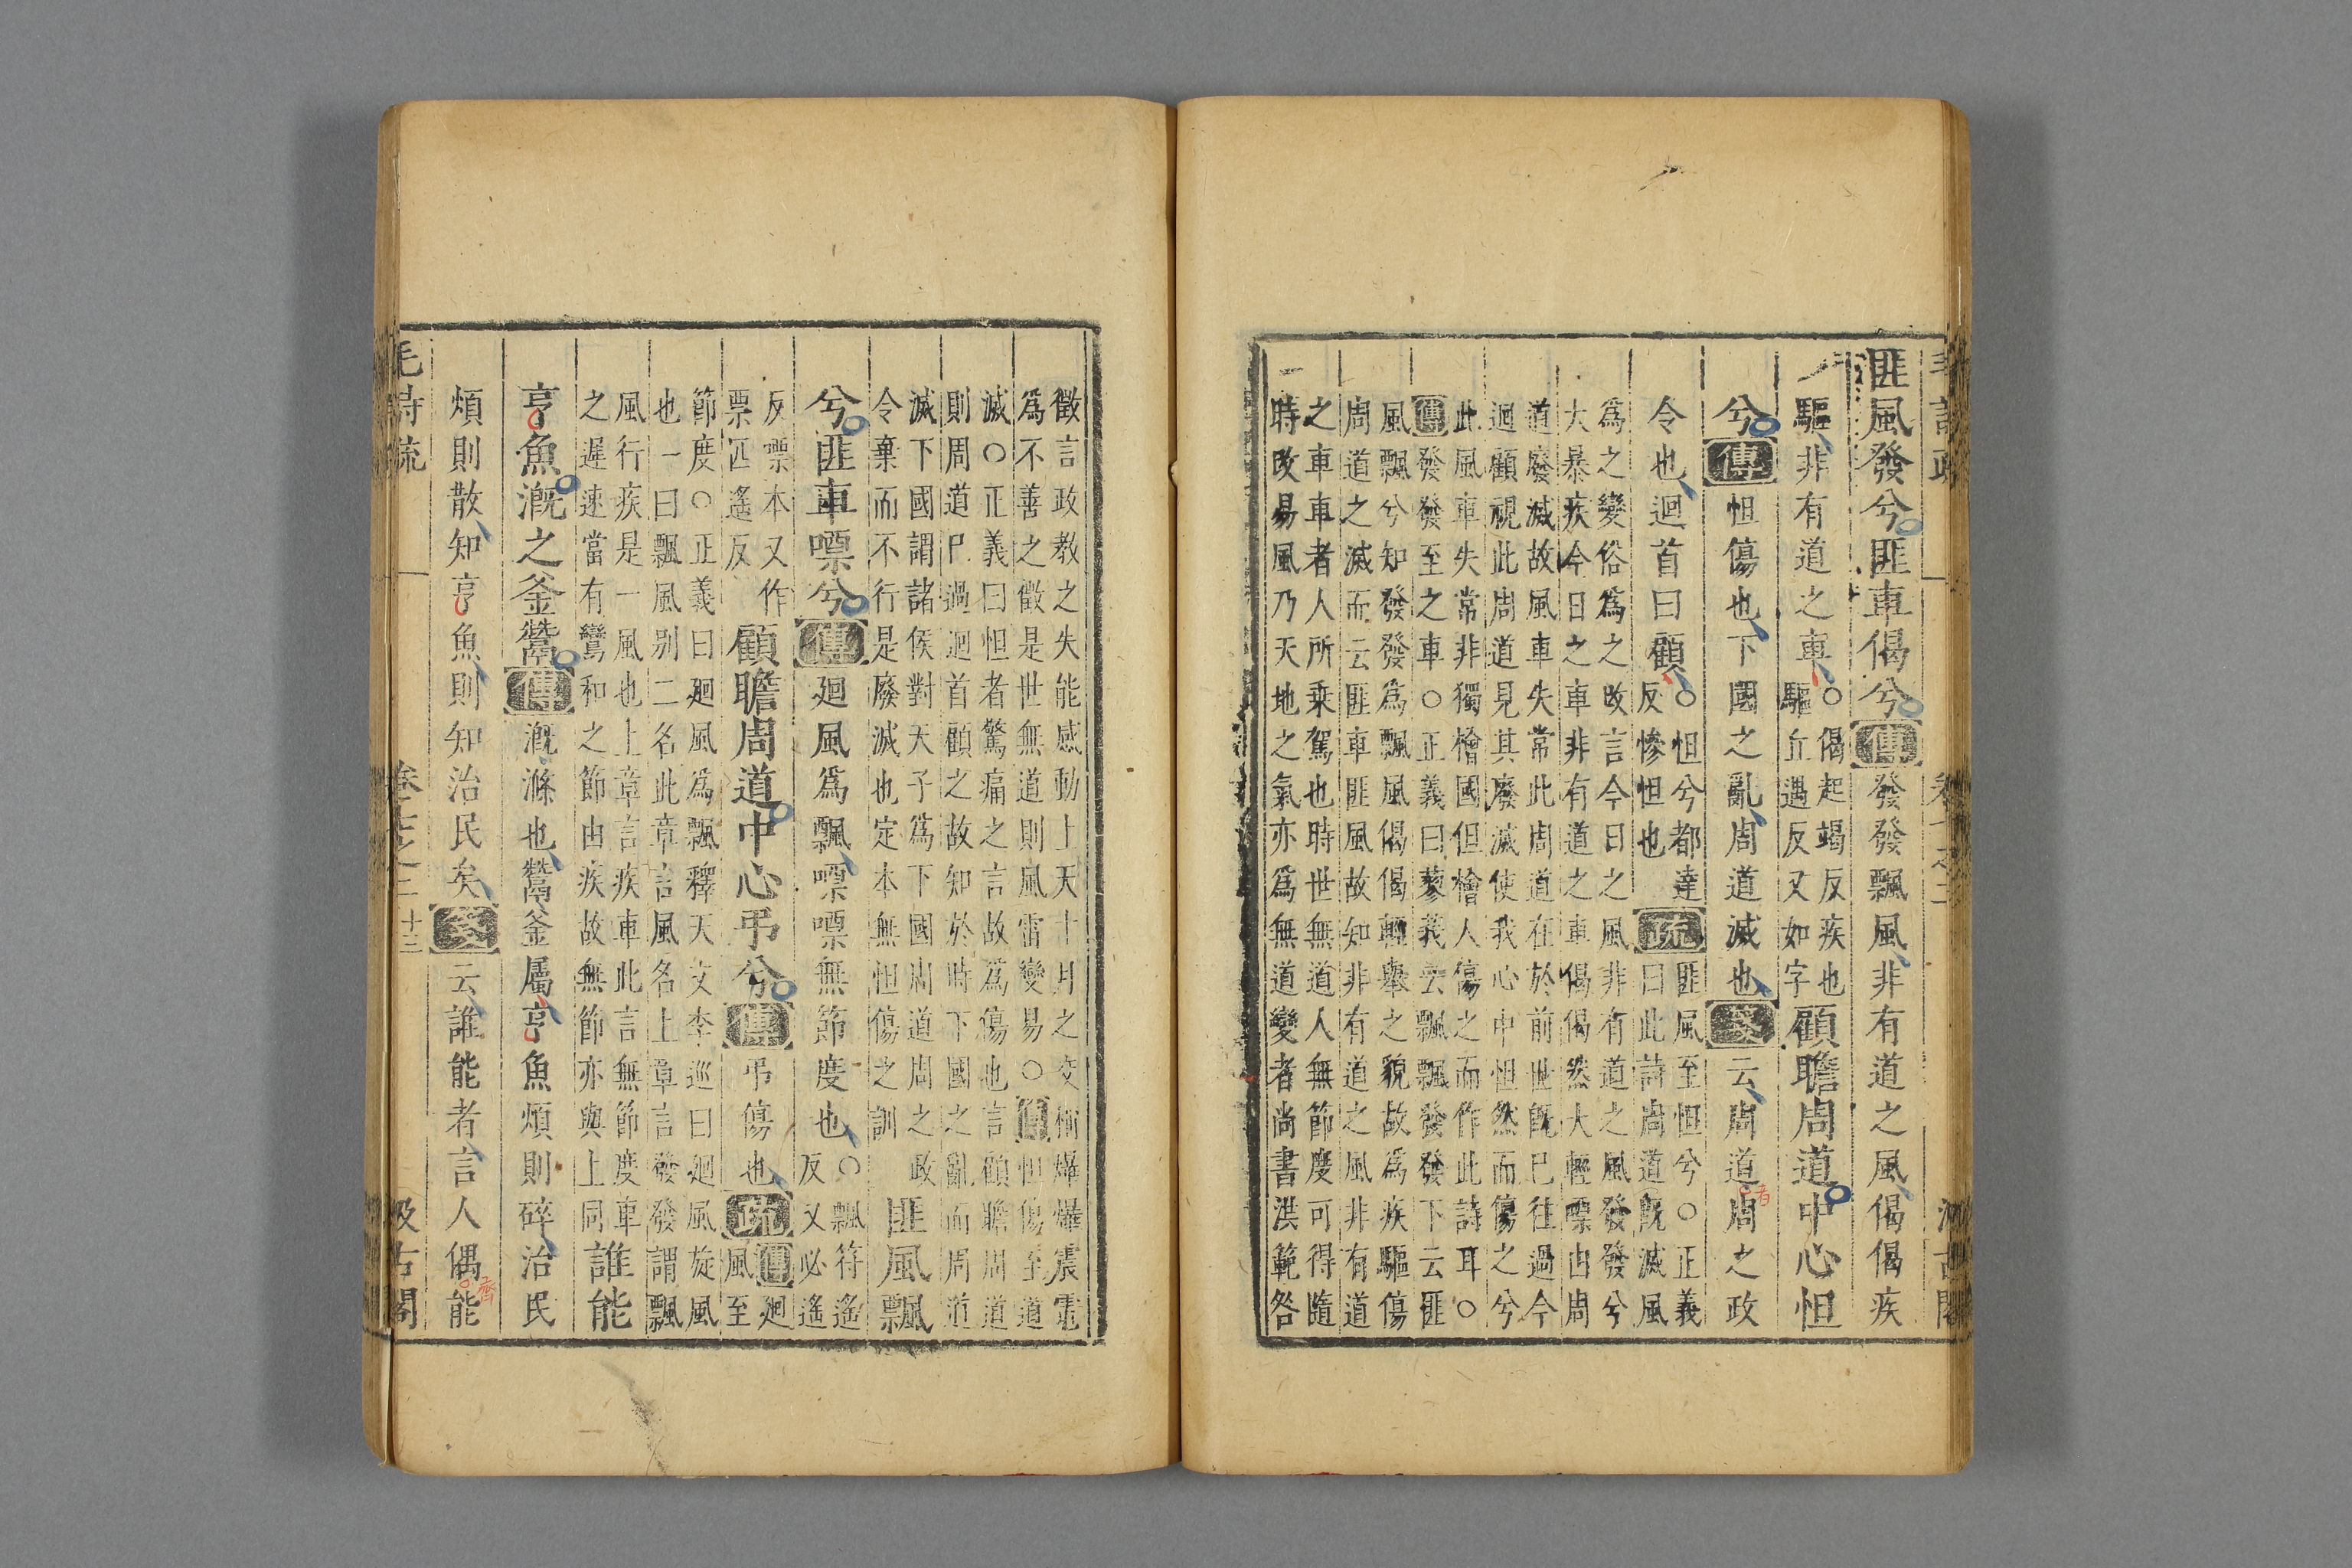 匪風發兮匪車偈兮傳發發飄風非有道之風偈偈疾
驅非有道之車○偈起竭反疾也
驅丘遇反又如字
顧瞻周道中心怛
兮傳怛傷也下國之亂周道滅也箋云周道周之政
者
令也迴首曰顧○怛兮都達
反慘怛也
疏匪風至怛兮○正義
曰此詩周道既滅風
爲之變俗爲之改言今日之風非有道之風發發兮
大暴疾今日之車非有道之車偈偈然大輕嘌由周
道廢滅故風車失常此周道在於前世既已往過今
迴顧視此周道見其廢滅使我心中怛然而傷之兮
此風車失常非獨檜國但檜人傷之而作此詩耳○
傳發發至之車○正義曰蓼莪云飄飄發發下云匪
風飄兮知發發爲飄風偈偈輕舉之貌故爲疾驅傷
周道之滅而云匪車匪風故知非有道之風非有道
之車車者人所乘駕也時世無道人無節度可得隨
時改易風乃天地之氣亦爲無道變者尚書洪範咎
徵言政教之失能感動上天十月之交稱爗爗震電
爲不善之徵是世無道則風雷變易○傳怛傷至道
滅○正義曰怛者驚痛之言故爲傷也言顧瞻周道
則周道已過迴首顧之故知於時下國之亂而周道
滅下國謂諸侯對天子爲下國周道周之政
令棄而不行是廢滅也定本無怛傷之訓
匪風飄
兮匪車嘌兮傳廻風爲飄嘌嘌無節度也○飄符遙
反又必遙
反嘌本又作
票匹遙反
顧瞻周道中心弔兮傳弔傷也疏傳廻
風至
節度○正義曰廻風爲飄釋天文李巡曰廻風旋風
也一曰飄風別二名此章言風名上章言發發謂飄
風行疾是一風也上章言疾車此言無節度車
之遲速當有鸞和之節由疾故無節亦與上同
誰能
亨魚漑之釜鬵傳漑滌也鬵釜屬亨魚煩則碎治民
煩則散知亨魚則知治民矣箋云誰能者言人偶能
齊
毛詩疏
卷七之二
十三
汲古閣